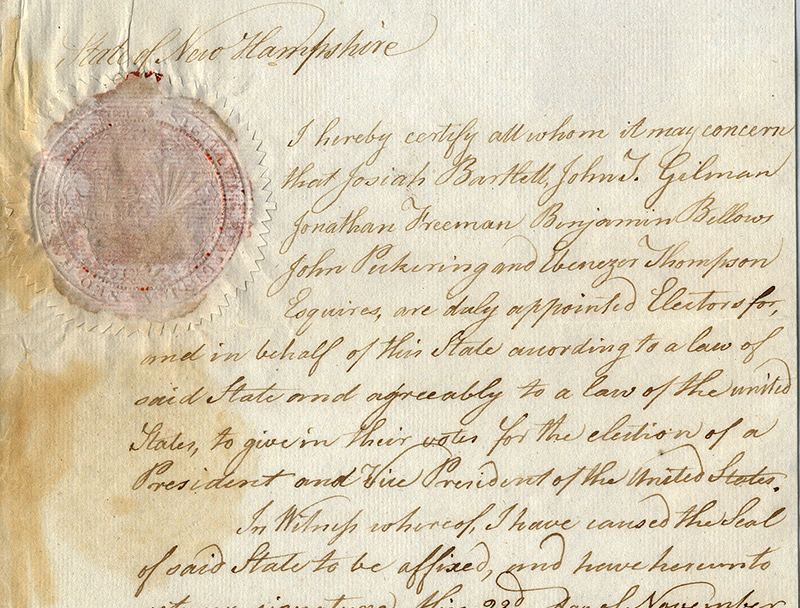 State of New Hampshire
I hereby certify all whom it may concern
that Josiah Bartlett, John T. Gilman
Jonathan Freeman Benjamin Bellows
John Pickering and Ebenezer Thompson
Esquires, are duly appointed Electors for,
and in behalf of this State according to a law of
said State and agreeably to a law of the united
States, to give in their votes for the election of a
President and Vice President of the United States.
In Witness whereof, I have caused the Seal
of said State to be affixed, and have hereunto
set my signature this 22d day of November